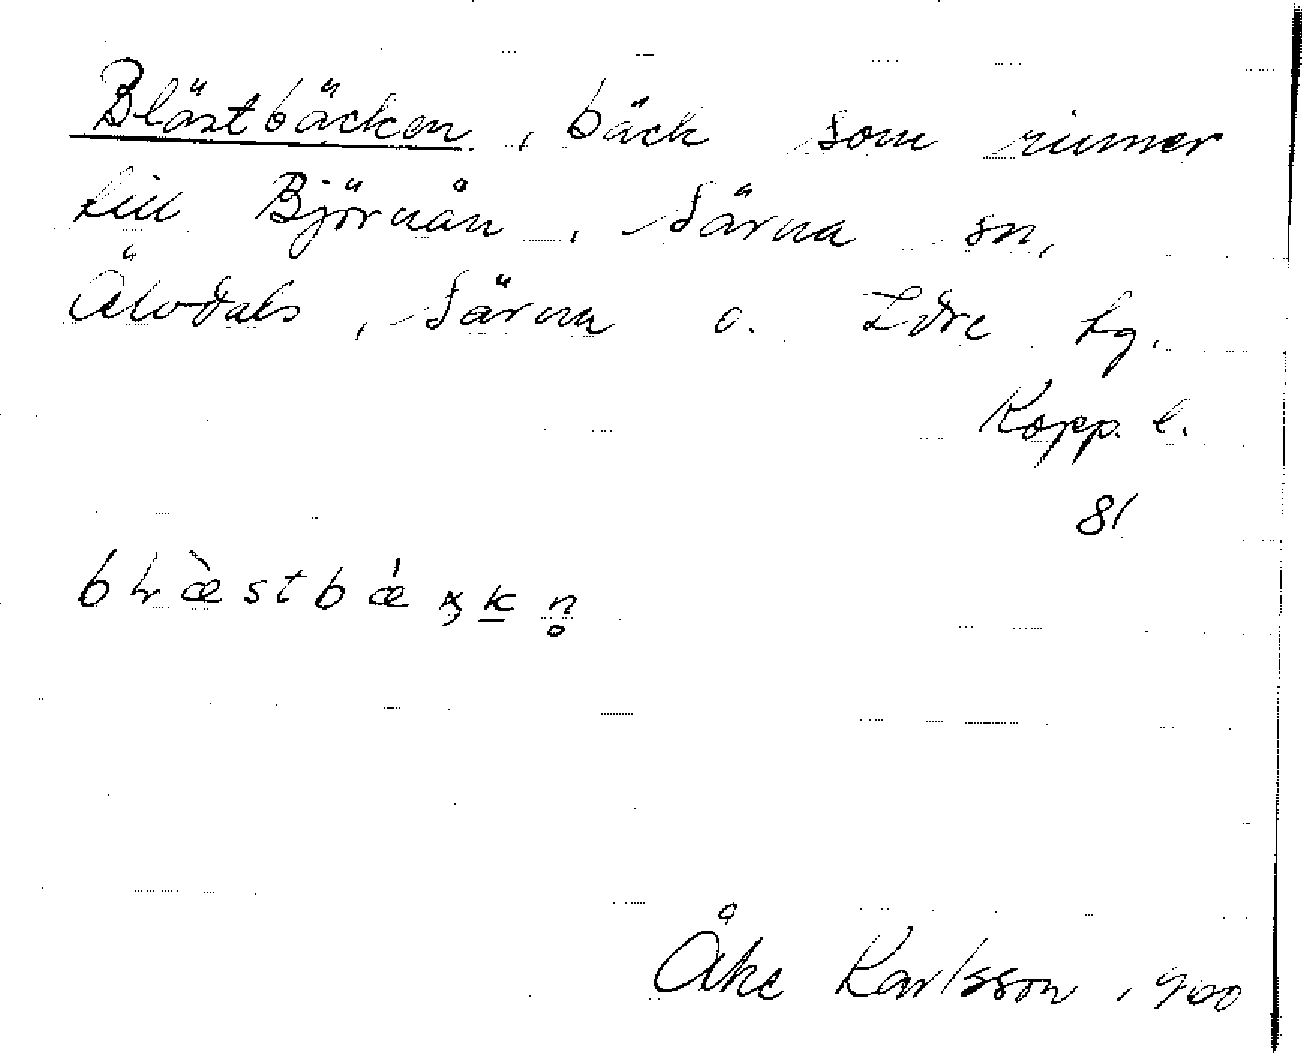 Blästbäcken, bäck som rinner
till Björnån, Särna sn,
Älvdals, Särna o. Idre tg.
Kopp. l.
81
Åke Karlsson, 900